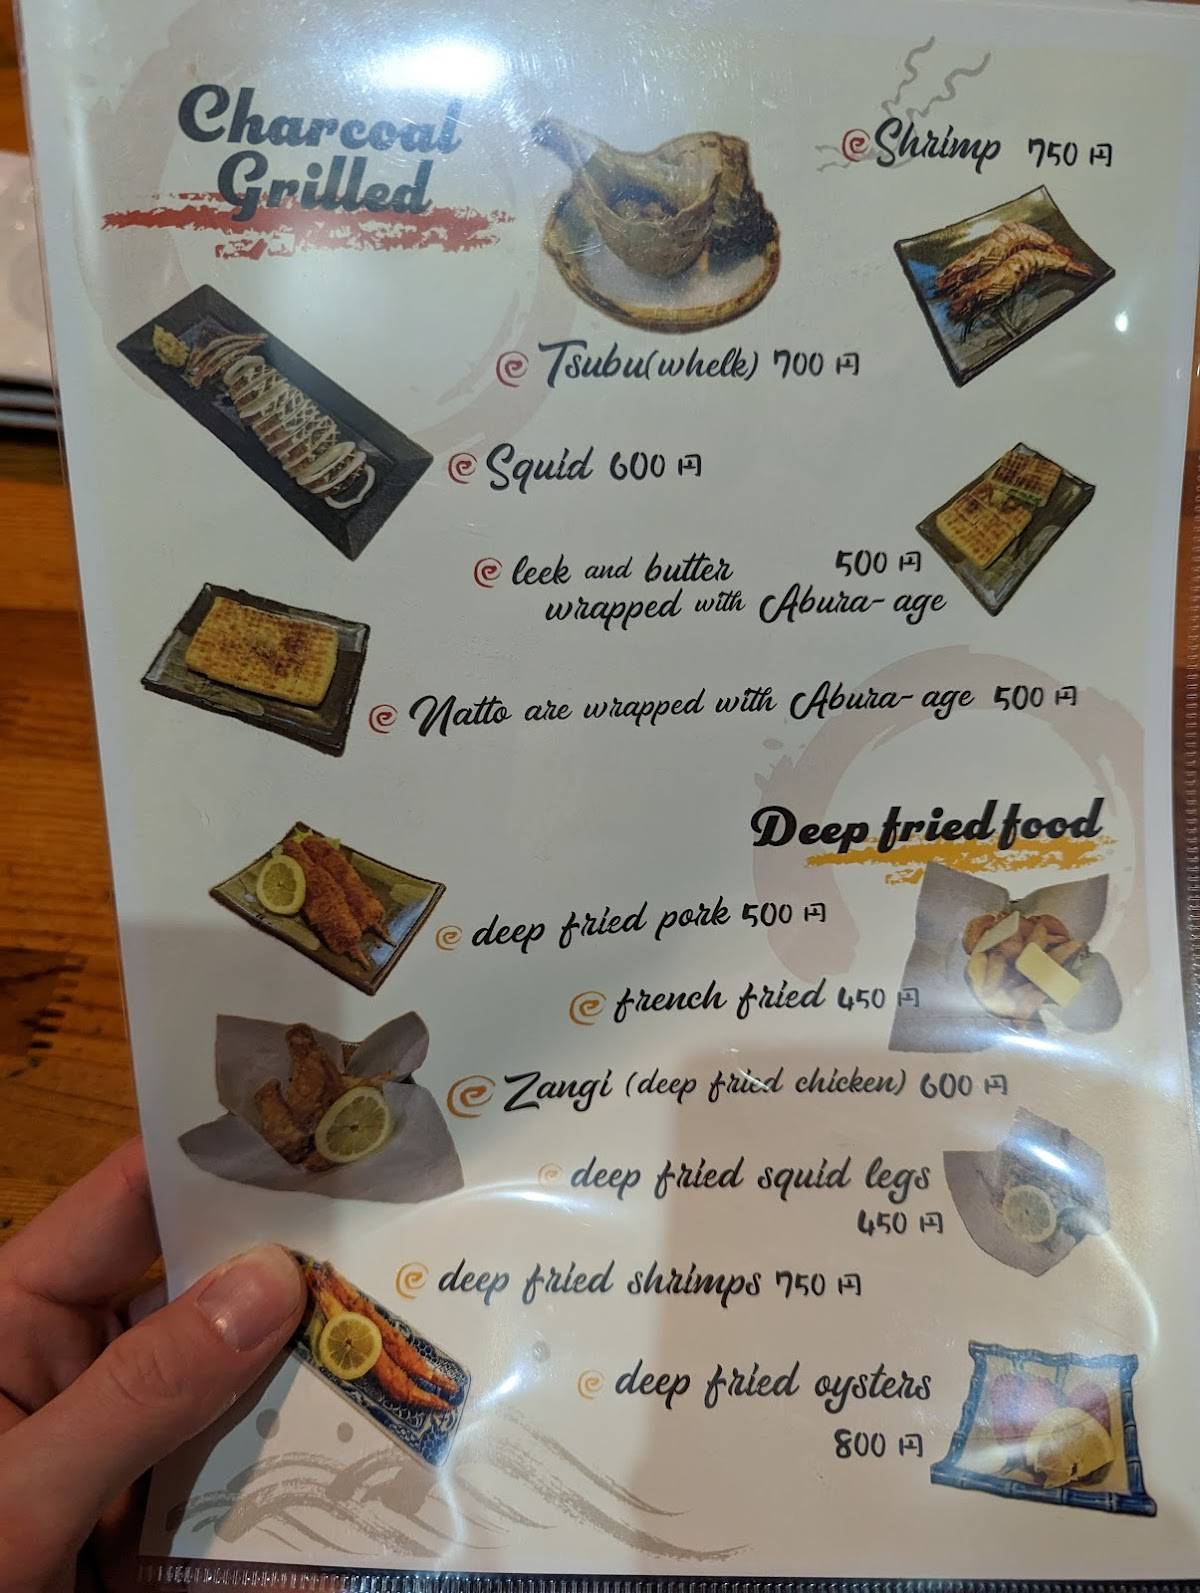 Charcoal
Grilled
Shrimp 750 円
Tsubu(whelk) 700 円
Squid 600 円
leek and butter 500 円
wrapped with Abura-age
Natto are wrapped with Abura-age 500 円
Deep fried food
deep fried pork 500 円
french fried 450 円
Zangi (deep fried chicken) 600 円
deep fried squid legs
450 円
deep fried shrimps 750 円
deep fried oysters
800 円